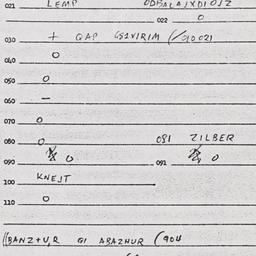 021 LEMP ODBALAJXDIOJZ
022 O
030 + QAP GSIVIRIM (/90021
040 O
050 O
060 –
070 O
080 O 081 ZILBER
090 O 091 O
100 KNEJT
110 O
ABAZHUR (904